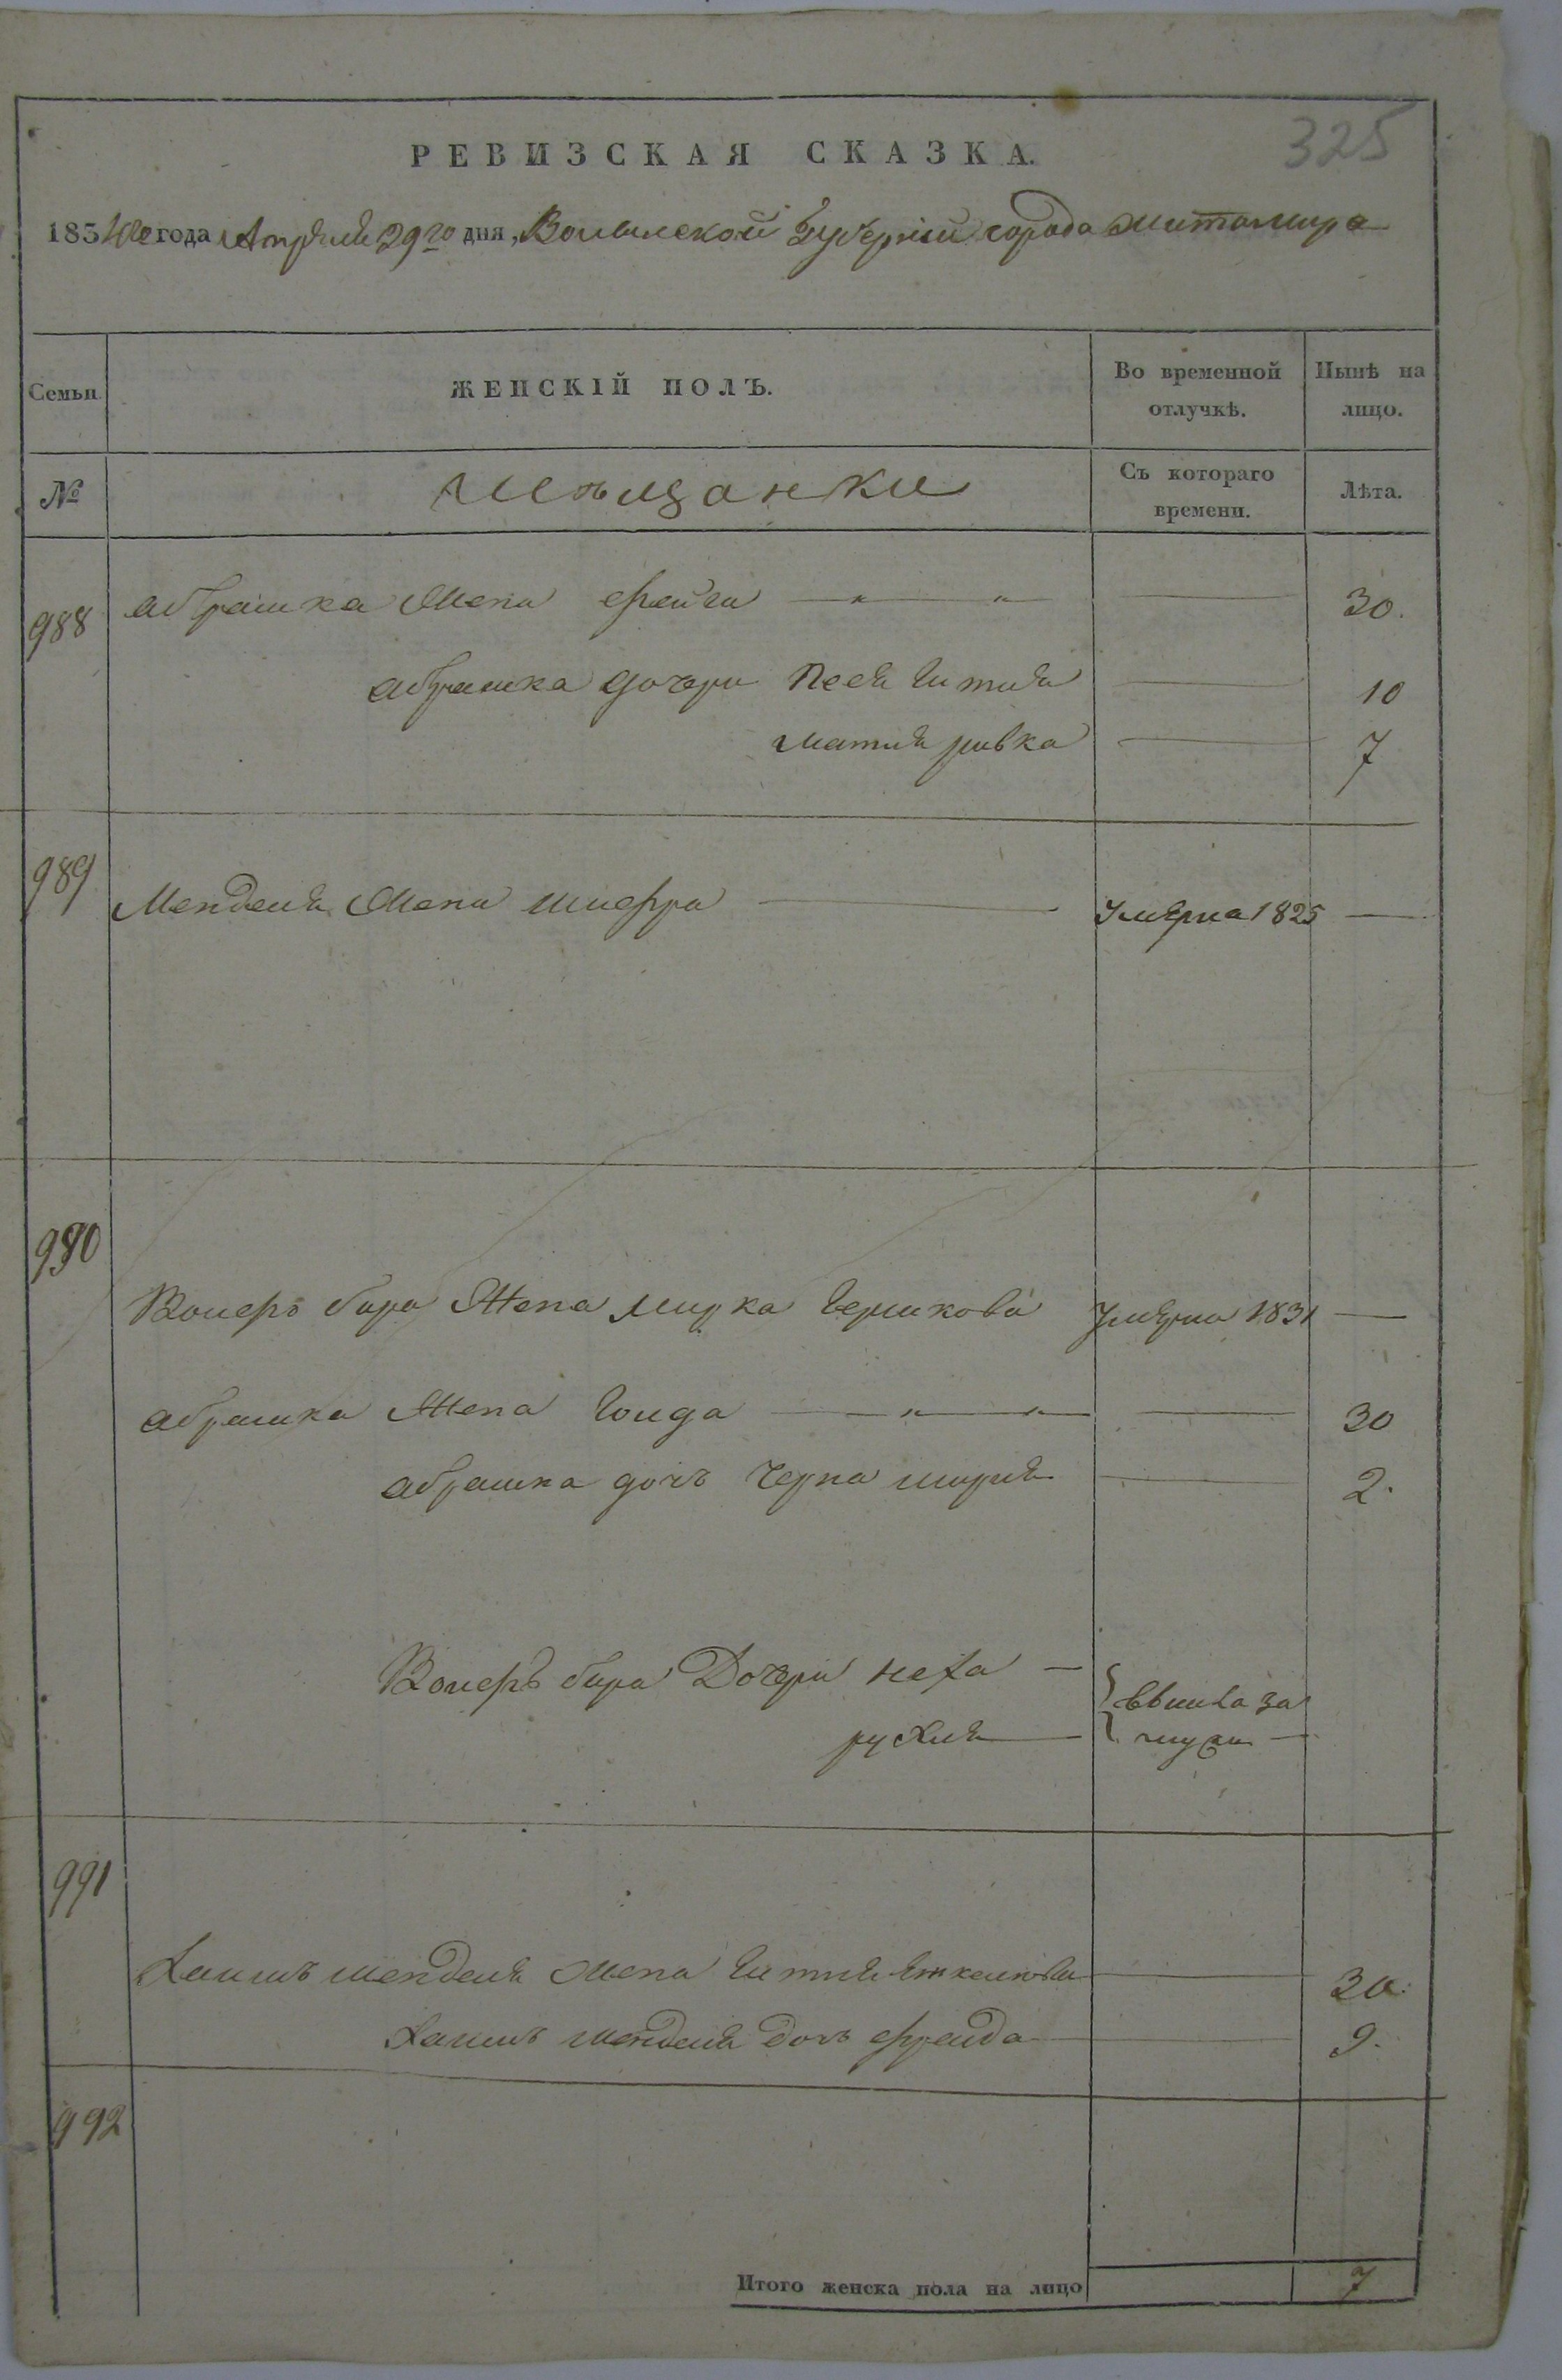 325
РЕВИЗСКАЯ СКАЗКА.
1834го года Апреля 29го дня, Волынской Губернии города Житомира
Семьи. ЖЕНСКІЙ ПОЛЪ. Во временной отлучкѣ. Нынѣ на лицо.
№ мещанки Съ котораго времени. Лѣта.
988 абрашка Жена фейга — " — " — 30.
абрашка дочери Песя Гитля — 10
Матля ривка — 7
989 Менделя Жена шифра — Умерла 1825 —
990
Волефъ бера Жена Мирка Беркова Умерла 1831 —
абрашка Жена Голда — " — " — 30
абрашка дочъ Черна — 2.
Волефъ бера Дочери неха —
рухля —
991
Хаимъ менделя Жена Гитля — 30.
Хаимъ менделя дочъ фрейда — 9.
992
Итого женска пола на лицо 7